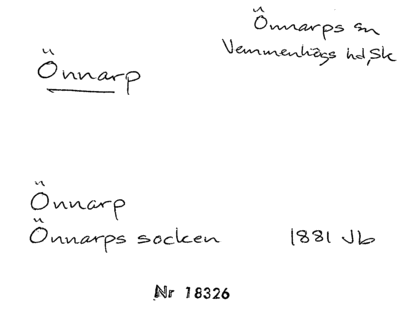 Önnarps sn
Vemmenhögs hd, Sk
Önnarp
Önnarp
Önnarps socken 1881 Jb
Nr 18326